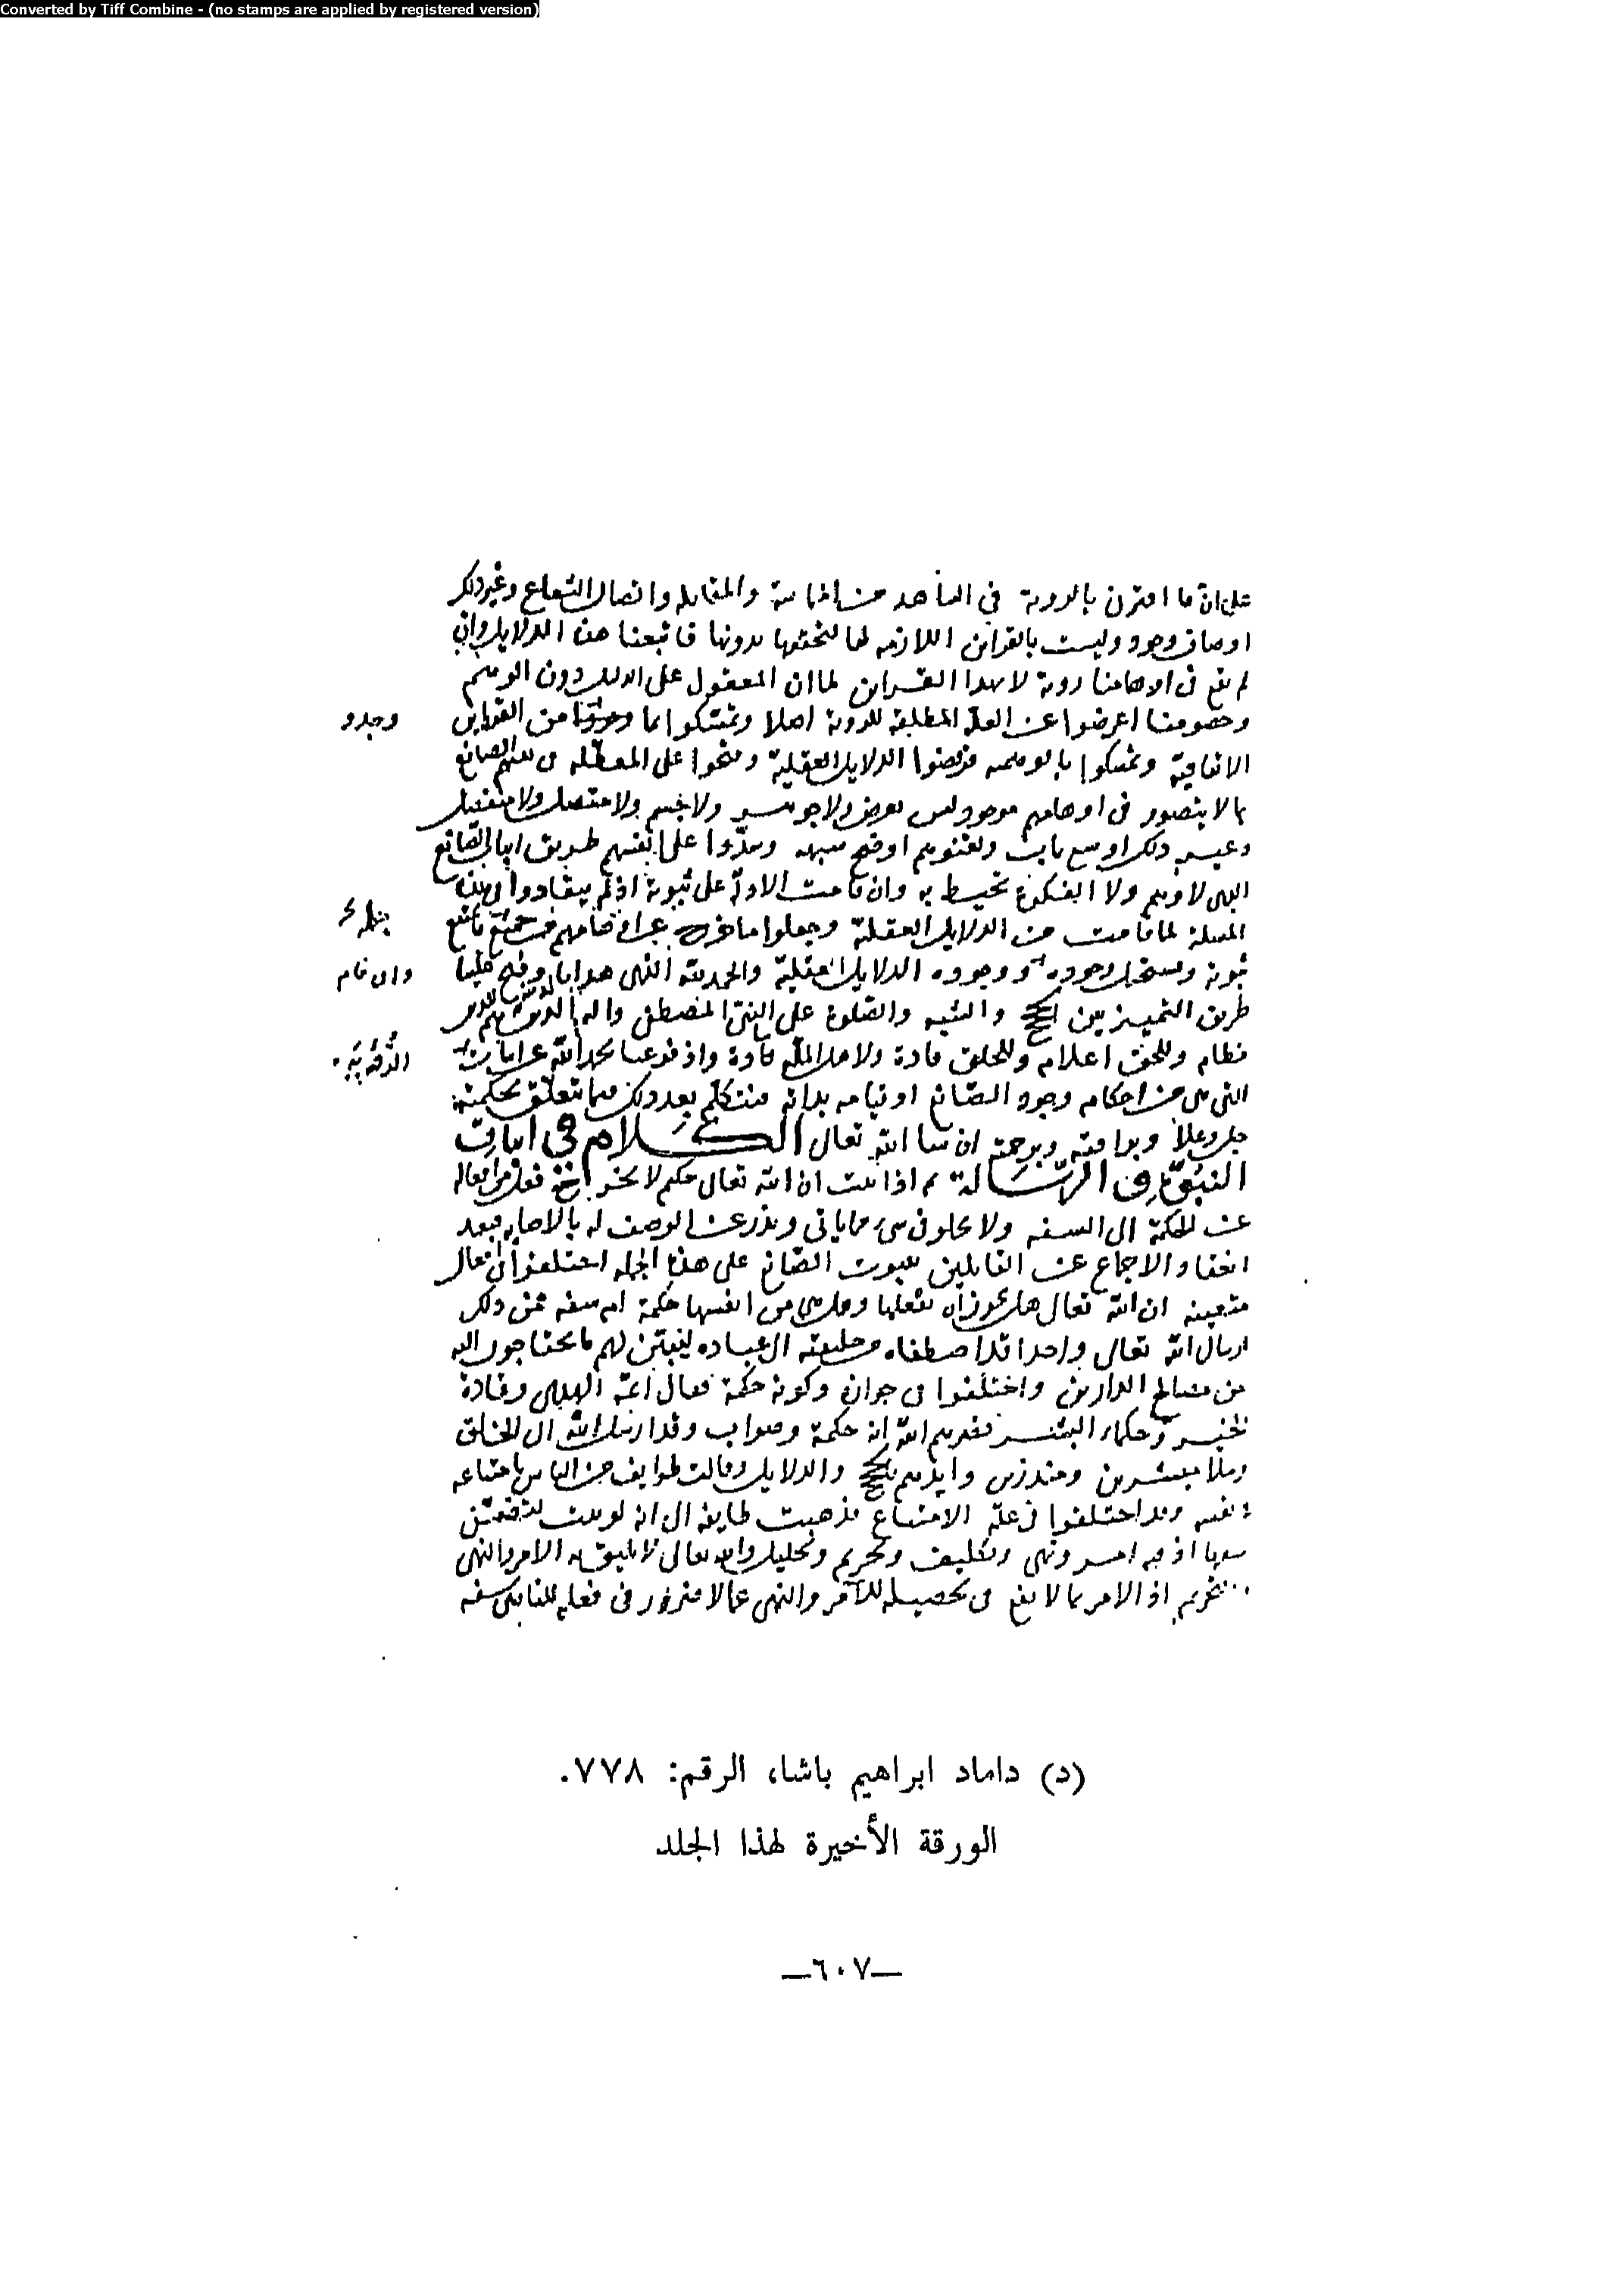 Converted by Tiff Combine - (no stamps are applied by registered version)
على ان ما اقترن بالروية في الشاهد من المماسة والمقابله واتصال الشعاع وغير ذلك
اوصاف وجود وليست بالقراين اللازمه لها فاتبعنا هذه الدلايل وان
لم يقع في اوهامنا روية لا بهذا القراين لما ان المعقول على الدليل دون الوهم
وخصومنا اعرضوا عن العلة المطلقة للروية اصلا وتمسكوا بما وجدوا من القراين
وجدو
الاتفاقية وتمسكوا بالوهم فرفضوا الدلايل العقلية على المعطله الصانع
لا يتصور في اوهامهم موجود ليس بعرض ولا جوهر ولا جسم ولا متصل ولا منفصل
وغير ذلك اوسع باب اوضح شبهه وسدوا على انفسهم طريق اثبات الصانع
الذي لا وهم ولا الفكرة تحيط به وان قامت الادلة على ثبوته اذ لم ينقادوا في هذه
المسلة لما قامت من الدلايل العقلية وجعلوا ما خرج عن اوهامهم
ثبوته ويستحيل وجوده ووجوده الدلايل العقلية والحمد لله الذي هدانا وفتح علينا
وان قام
طريق التمييز بين الحجج والشبه والصلوة على النبي المصطفى واله الذين هم للدين
نظام وللحق اعلام وللخلق قادة ولاهل الملة سادة واذ فرغنا بحمد الله عن اثبات
التي هي من احكام وجود الصانع او قيامه بذاته فنتكلم بعد ذلك فيما يتعلق بحكمته
جل وعلا وبرافته وبرحمته ان شا الله تعالى الكلام في اثبات
النبوة والرسالة ثم اذا ثبت ان الله تعالى حكيم لا يخرج فعل من افعاله
عن الحكمة الى السفه ولا يخلو في شيء مما ياتي ويذر عن الوصف له بالاصابه فبعد
انعقاد الاجماع عن القايلين بثبوت الصانع على هذه الجملة اختلفوا في افعال
متعينه ان الله تعالى هل يجوز ان يفعلها وهل هي من انفسها حكمة ام سفه فمن ذلك
ارسال الله تعالى واحدا قد اصطفاه من خليقته الى عباده ليبين لهم ما يحتاجون اليه
من مصالح الدارين واختلفوا في جوازه وكونه حكمة فقال ايمة الهدى وقادة
الخير وحكماء البشر نصرهم الله انه حكمة وصواب وقد ارسل الله الى الخلق
رسلا مبشرين ومنذرين وايدهم بالحجج والدلايل وقالت طوايف من الناس بامتناعه
في نفسه وقد اختلفوا في علة الامتناع فذهبت طايفه الى انه لو ثبت لثبت
اذ فيه امر ونهي وتكليف وتحريم وتحليل والله تعالى لا يليق به الامر والنهي
اذ الامر بما لا نفع في تحصيله للآمر والنهي عما لا ضرر في فعله للناهي سفه
(د) داماد ابراهيم باشا، الرقم: ٧٧٨.
الورقة الأخيرة لهذا الجلد
—٦٠٧—